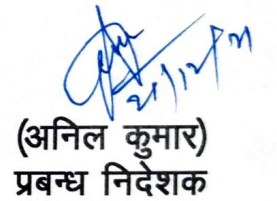 (अनिल कुमार)
प्रबन्ध निदेशक